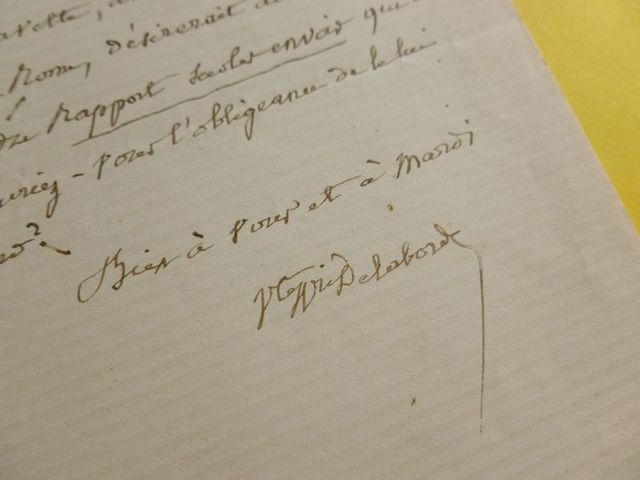 Rome, désirerait
Rapport sur les envois qui
vous l'obligeance de le lui
Bien à vous et à Mardi
Vte H Delaborde